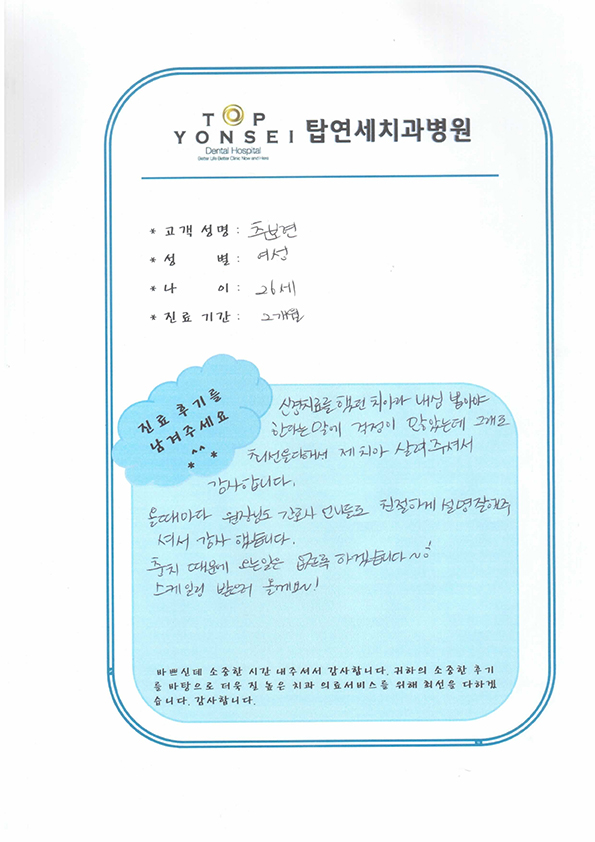 TOP
YONSEI 탑연세치과병원
Dental Hospital
Better Life Better Clinic Now and Here
* 고객 성명 : 추보현
* 성 별 : 여성
* 나 이 : 26세
* 진료 기간 : 2개월
진료 후기를
남겨주세요
^^
* *
신경치료를 했던 치아라 내심 뽑아야
한다는 말에 걱정이 많았는데 그래도
최선을다해서 제 치아 살려주셔서
감사합니다.
올때마다 원장님도 간호사 언니들도 친절하게 설명 잘해주
셔서 감사 했습니다.
충치 때문에 오는일은 없도록 하겠습니다~!
스케일링 받으러 올게요~!
바쁘신데 소중한 시간 내주셔서 감사합니다. 귀하의 소중한 후기
를 바탕으로 더욱 질 높은 치과 의료서비스를 위해 최선을 다하겠
습니다. 감사합니다.